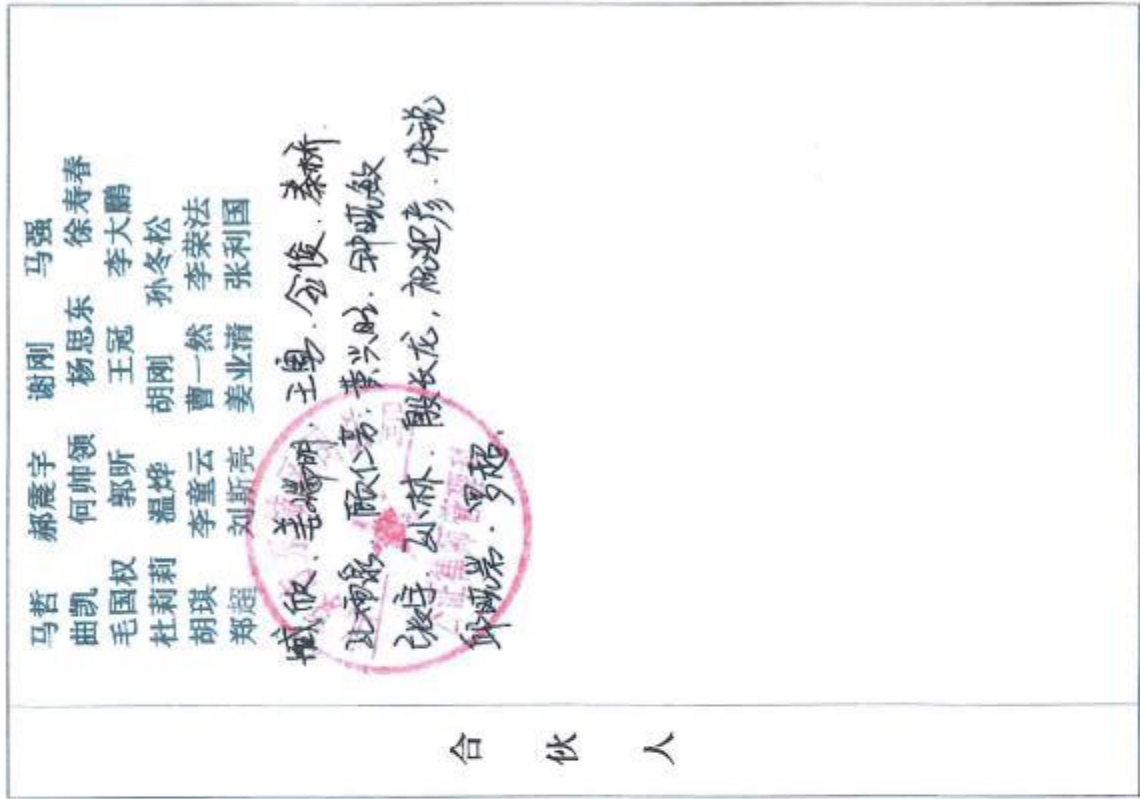 合伙人
马哲 郝震宇 谢刚 马强
曲凯 何帅领 杨思东 徐寿春
毛国权 郭昕 王冠 李大鹏
杜莉莉 温烨 胡刚 孙冬松
胡琪 李童云 曹一然 李荣法
郑超 刘斯亮 姜业清 张利国
臧欣、姜瑞明、王粤、金俊、秦桥
顾仁荣、黄兴旺、钟晓敏
张宇 孙林、殷长龙、
罗超